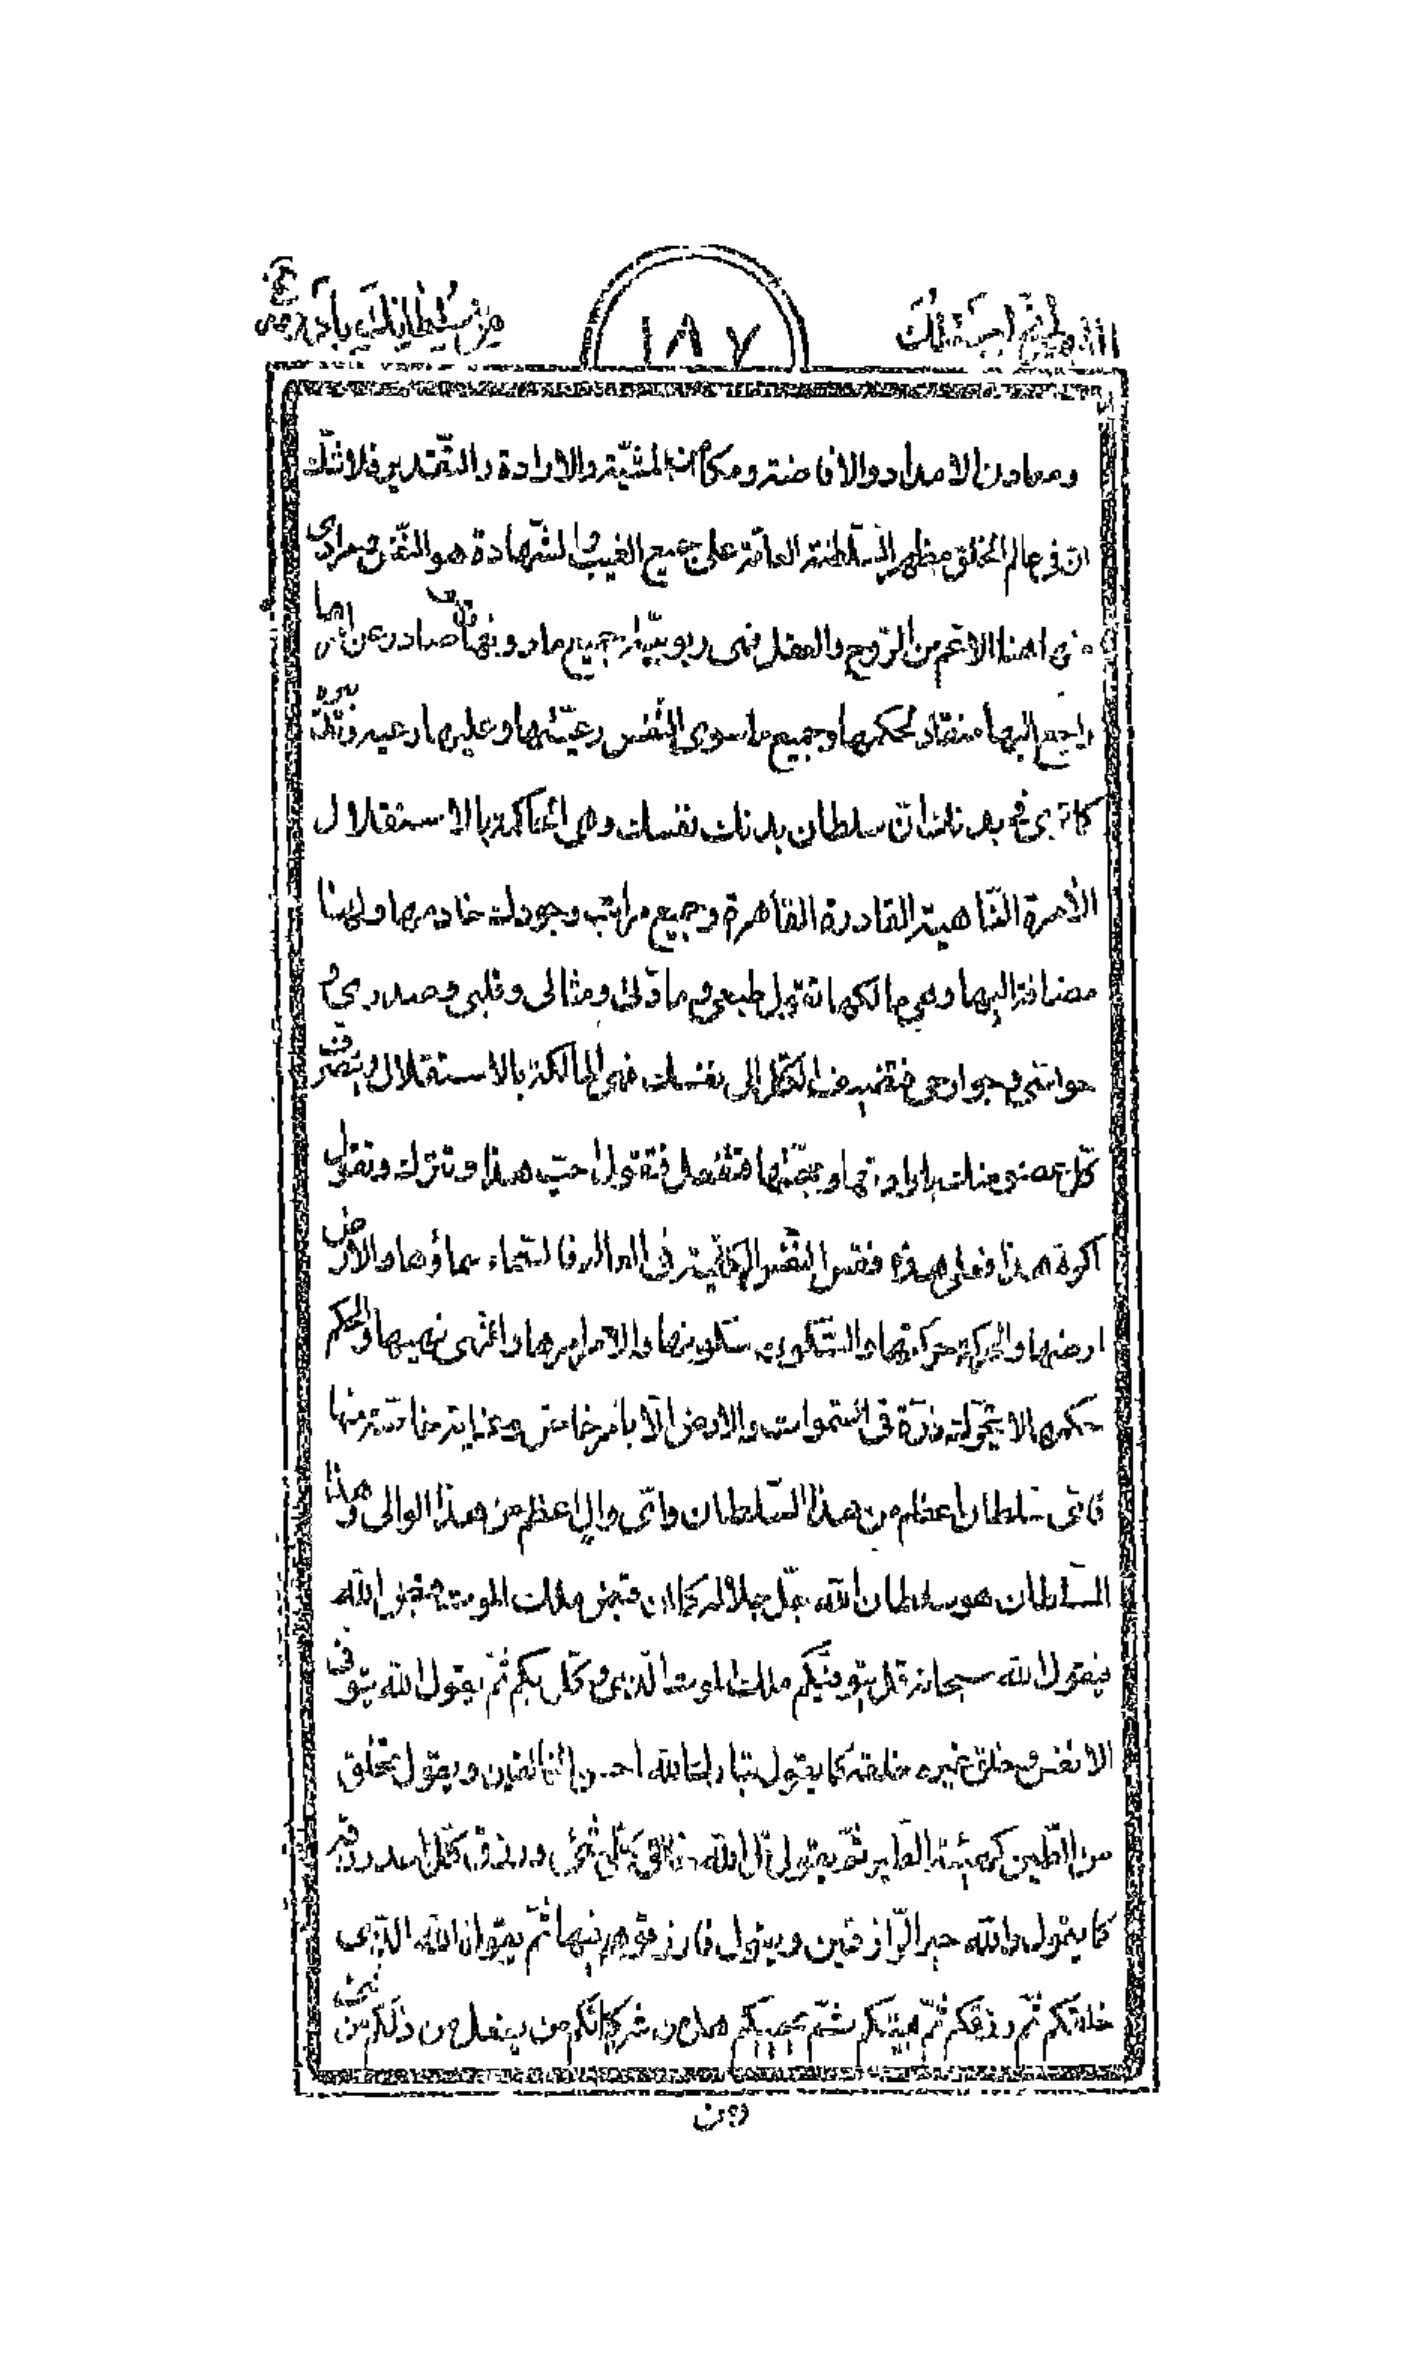 اللهم انی اسئلک
١٨٧
من سلطانک بادومه
ومعادن الامداد والافاضة ومكامن المشیّة والارادة والتقدیر فلا شكّ
ان فی عالم الخلق مظهر السّلطنة العامّة علی جمیع الغیب والشّهادة هو النّفس ومرادی
منها هنا الاعم من الرّوح والعقل فهی ربوبیّة جمیع ما دونها صادر عن امرها
راجع الیها منقاد لحكمها وجمیع ما سوی النّفس رعیّتها وعلیها
كما تری فی بدنك انّ سلطان بدنك نفسك وهی الحاكمة بالاستقلال
الآمرة النّاهیة القادرة القاهرة وجمیع مراتب وجودك خادمها ولهذا
مضافة الیها وهی مالكها تقول طبعی ومادّتی ومثالی وقلبی وصدری و
حواسّی وجوارحی فتضیف الكلّ الی نفسك فهی المالكة بالاستقلال ویتصرف
كلّ عضو منك بارادتها ومحبّتها فتفعل فتقول احبّ هذا وتترك وتقول
اكره هذا فعلی هذه فقس النّفس الكلّیّة فی العالم فالسّماء سماؤها والارض
ارضها والحركة حركتها والسّكون سكونها والامر امرها والنّهی نهیها والحكم
حكمها لا یتحرّك ذرّة فی السّموات والارض الّا بامر خاصّ وعنایة خاصّة منها
فایّ سلطان اعظم من هذا السّلطان وایّ وال اعظم من هذا الوالی وهذا
السّلطان هو سلطان الله جلّ جلاله كما ان قبض ملك الموت قبض الله
فیقول الله سبحانه قل یتوفّیكم ملك الموت الّذی وكّل بكم ثمّ یقول الله یتوفی
الانفس وخلق غیره خلقه كما یقول تبارك الله احسن الخالقین ویقول تخلق
من الطّین كهیئة الطّیر ثمّ یقول الله خالق كلّ شیء ورزق كلّ احد رزقه
كما یقول والله خیر الرّازقین ویقول فارزقوهم منها ثمّ یقول الله الّذی
خلقكم ثمّ رزقكم ثمّ یمیتكم ثمّ یحییكم هل من شركائكم من یفعل من ذلكم من شیء
ون